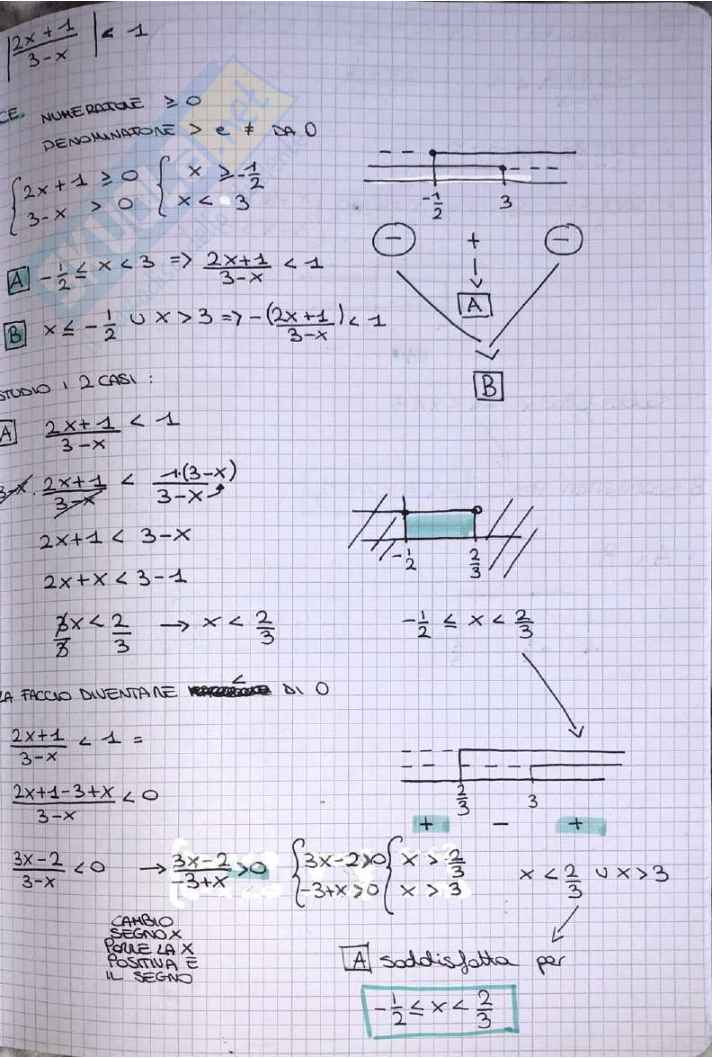 |2x+1 / 3-x| < 1
C.E. NUMERATORE ≥ 0
DENOMINATORE > e ≠ DA 0
{2x+1 ≥ 0 {x ≥ -1/2
{3-x > 0 {x < 3
-1/2 3
- + -
A
B
A -1/2 ≤ x < 3 => 2x+1 / 3-x < 1
B x ≤ -1/2 ∪ x > 3 => -(2x+1 / 3-x) < 1
STUDIO I 2 CASI :
A 2x+1 / 3-x < 1
3-x · 2x+1 / 3-x < 1·(3-x) / 3-x
2x+1 < 3-x
2x+x < 3-1
3x/3 < 2/3 → x < 2/3
-1/2 2/3
-1/2 ≤ x < 2/3
LA FACCIO DIVENTARE < DI 0
2x+1 / 3-x < 1 =
2x+1-3+x / 3-x < 0
3x-2 / 3-x < 0 → 3x-2 / -3+x > 0 {3x-2>0 {x > 2/3
{-3+x>0 {x > 3
2/3 3
+ - +
x < 2/3 ∪ x > 3
CAMBIO
SEGNO X
PORRE LA X
POSITIVA E
IL SEGNO
A soddisfatta per
-1/2 ≤ x < 2/3
SKUOLA.net